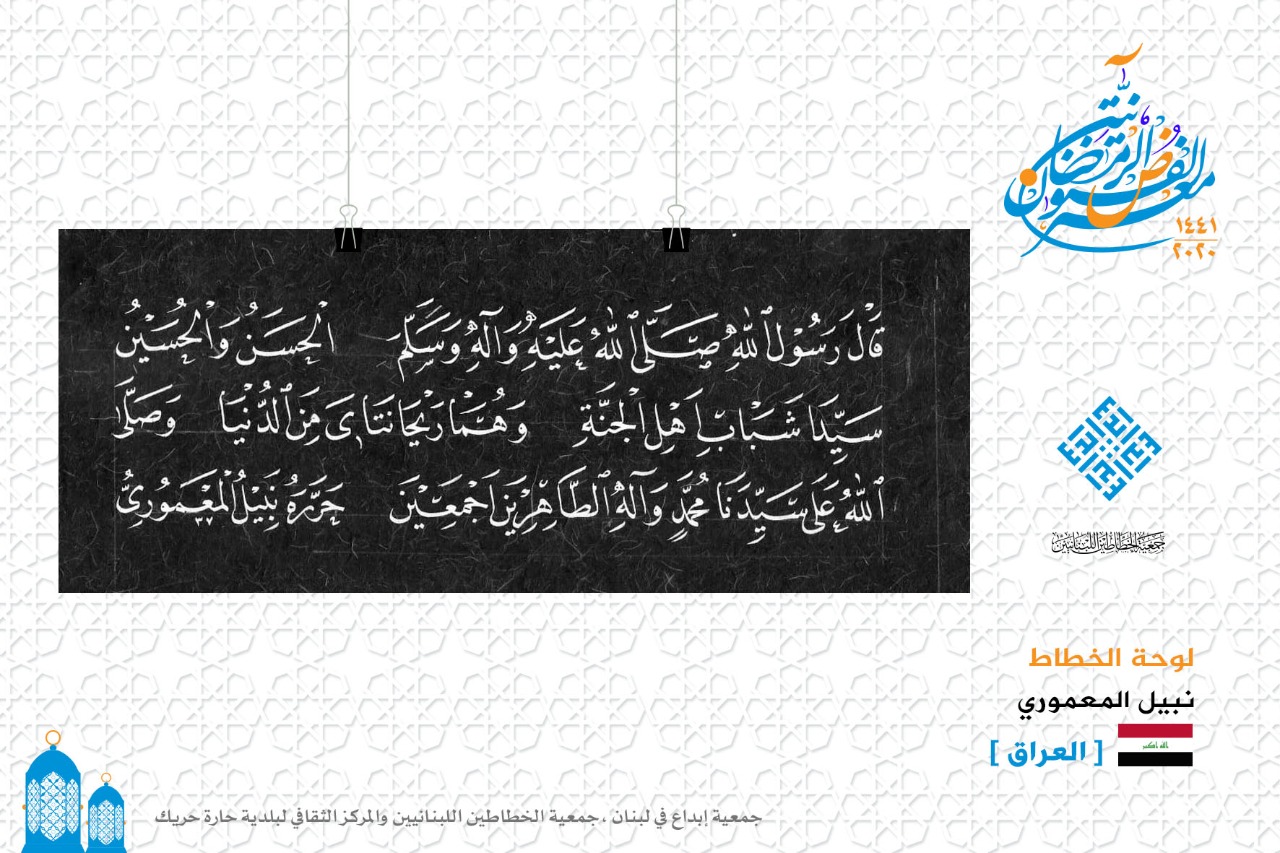 معرض الفنون الرمضانية
١٤٤١
٢٠٢٠
قَالَ رَسُوْلُ اللهِ صَلَّى اللهُ عَلَيْهِ وَآلِهِ وَسَلَّمَ الْحَسَنُ وَالْحُسَيْنُ
سَيِّدَا شَبَابِ اَهْلِ الْجَنَّةِ وَهُمَا رَيْحَانَتَاىَ مِنَ الدُّنْيَا وَصَلَّى
اللهُ عَلَى سَيِّدِنَا مُحَمَّدٍ وَآلِهِ الطَّاهِرِيْنَ اَجْمَعِيْنَ حَرَّرَهُ نَبِيْلُ الْمَعْمُورِىُّ
جمعية الخطاطين اللبنانيين
لوحة الخطاط
نبيل المعموري
[ العراق ]
الله اكبر
جمعية إبداع في لبنان ، جمعية الخطاطين اللبنانيين والمركز الثقافي لبلدية حارة حريك